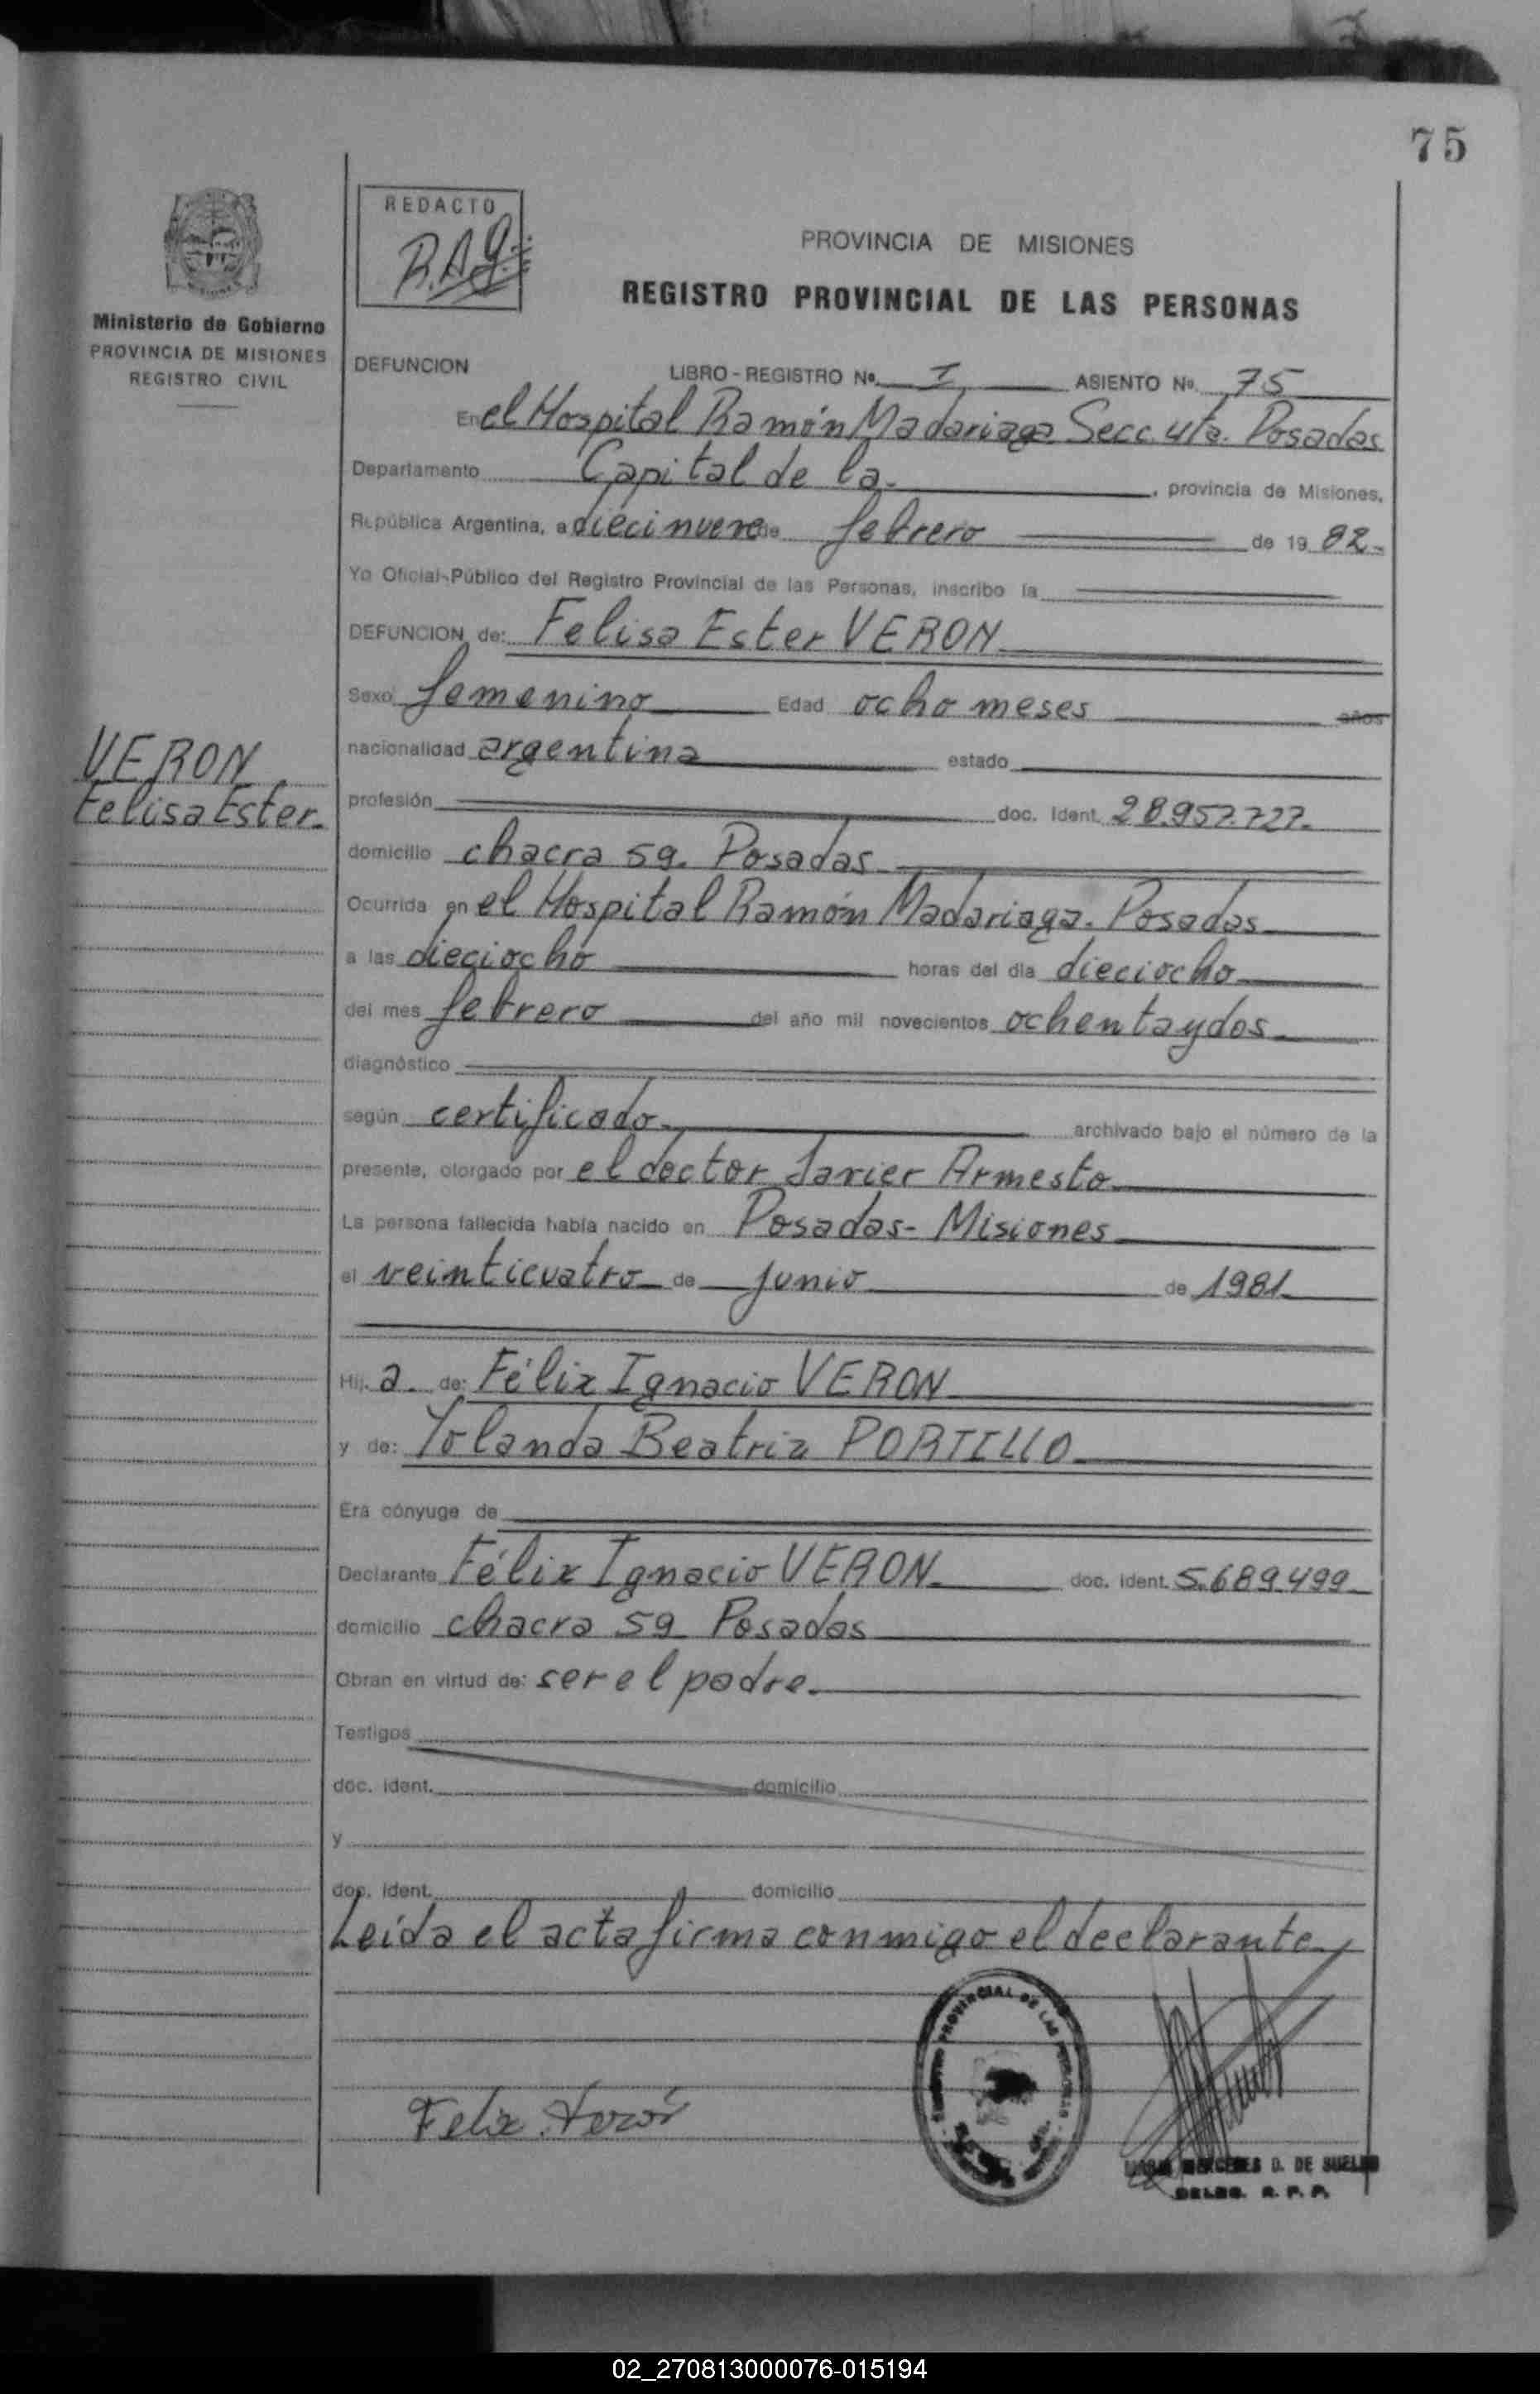 75
REDACTO
R.A.G.
PROVINCIA DE MISIONES
REGISTRO PROVINCIAL DE LAS PERSONAS
Ministerio de Gobierno
PROVINCIA DE MISIONES
REGISTRO CIVIL
DEFUNCION LIBRO-REGISTRO Nº. I ASIENTO Nº. 75
En el Hospital Ramón Madariaga Secc. 4ta. Posadas
Departamento Capital de la. , provincia de Misiones,
República Argentina, a diecinueve de febrero de 19 82.
Yo Oficial Público del Registro Provincial de las Personas, inscribo la
DEFUNCION de: Felisa Ester VERON
Sexo femenino Edad ocho meses años
VERON
Felisa Ester.
nacionalidad argentina estado
profesión doc. Ident. 28.957.727.
domicilio chacra 59. Posadas
Ocurrida en el Hospital Ramón Madariaga. Posadas
a las dieciocho horas del día dieciocho
del mes febrero del año mil novecientos ochenta y dos
diagnóstico
según certificado archivado bajo el número de la
presente, otorgado por el doctor Javier Armesto
La persona fallecida había nacido en Posadas- Misiones
el veinticuatro de junio de 1981
Hij. a. de: Félix Ignacio VERON
y de: Yolanda Beatriz PORTILLO
Era cónyuge de
Declarante Félix Ignacio VERON doc. ident. 5.689.499
domicilio chacra 59 Posadas
Obran en virtud de: ser el padre.
Testigos
doc. ident. domicilio
y
doc. ident. domicilio
Leída el acta firma conmigo el declarante
PROVINCIAL DE LAS
Felix Verón
MERCEDES D. DE
DELEG. R. P. P.
02_270813000076-015194